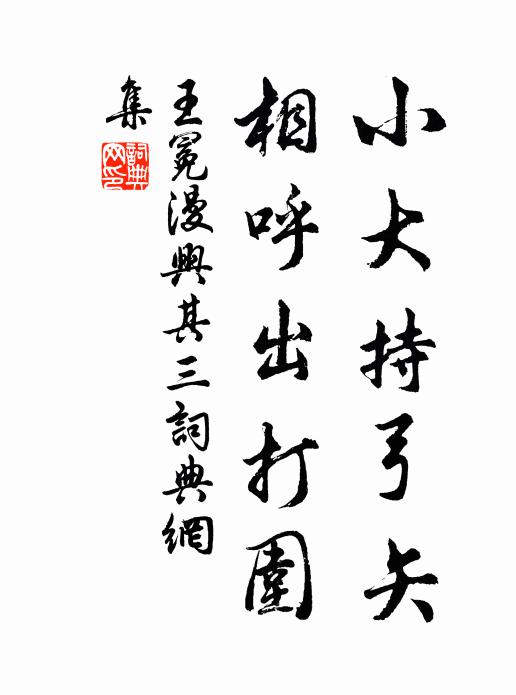 小大持弓矢
相呼出打圍
王冕漫興其三詞典網
集
詞典
网印